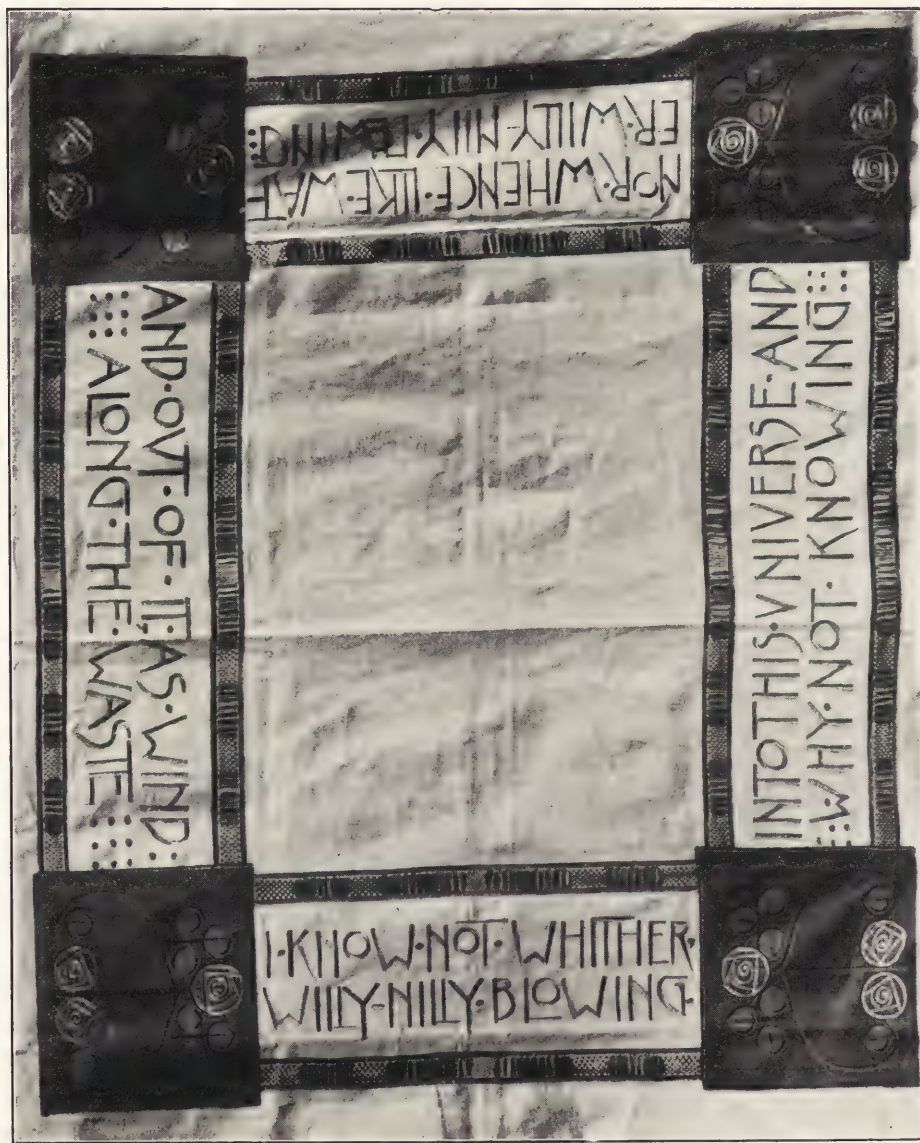 INTO THIS·VNIVERSE·AND
WHY·NOT·KNOWING
NOR·WHENCE·LIKE·WAT
ER·WILLY-NILLY·FLOWING
AND·OVT·OF·IT·AS·WIND
ALONG·THE·WASTE
I·KNOW·NOT·WHITHER·
WILLY-NILLY·BLOWING·